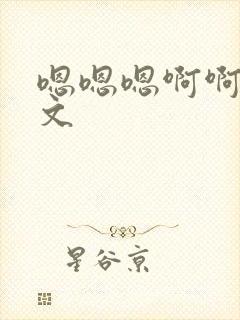 嗯嗯嗯啊啊
文
星谷京